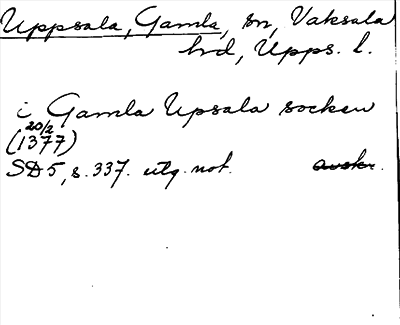 Uppsala, Gamla, sn, Vaksala
hd, Upps. l.
i Gamla Upsala socken
20/2
(1377)
SD5, s. 337. utg. not. avskr.